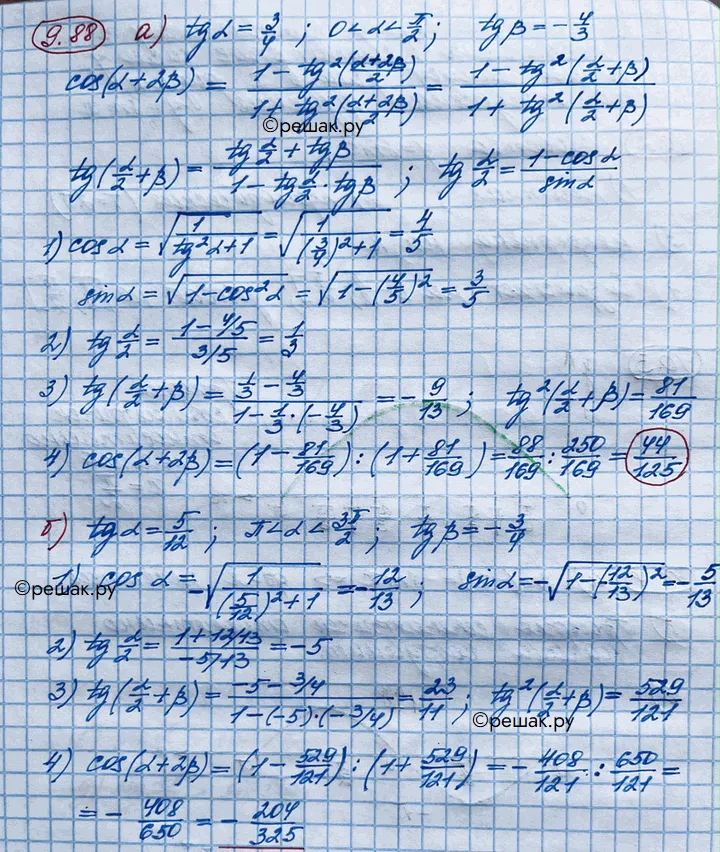 9.88 а) tgα = 3/4 ; 0 < α < π/2 ; tgβ = -4/3
cos(α+2β) = (1 - tg²((α+2β)/2)) / (1 + tg²((α+2β)/2)) = (1 - tg²(α/2+β)) / (1 + tg²(α/2+β))
©решак.ру
tg(α/2+β) = (tg α/2 + tgβ) / (1 - tg α/2 · tgβ) ; tg α/2 = (1-cosα)/sinα
1) cosα = √(1/(tg²α+1)) = √(1/((3/4)²+1)) = 4/5
sinα = √(1-cos²α) = √(1-(4/5)²) = 3/5
2) tg α/2 = (1-4/5)/(3/5) = 1/3
3) tg(α/2+β) = (1/3 - 4/3)/(1 - 1/3·(-4/3)) = -9/13 ; tg²(α/2+β) = 81/169
4) cos(α+2β) = (1 - 81/169) : (1 + 81/169) = 88/169 : 250/169 = 44/125
б) tgα = 5/12 ; π < α < 3π/2 ; tgβ = -3/4
1) cos α = -√(1/((5/12)²+1)) = -12/13 ; sinα = -√(1-(12/13)²) = -5/13
©решак.ру
2) tg α/2 = (1+12/13)/(-5/13) = -5
3) tg(α/2+β) = (-5 - 3/4)/(1-(-5)·(-3/4)) = 23/11 ; tg²(α/2+β) = 529/121
©решак.ру
4) cos(α+2β) = (1 - 529/121) : (1 + 529/121) = -408/121 : 650/121 =
= -408/650 = -204/325